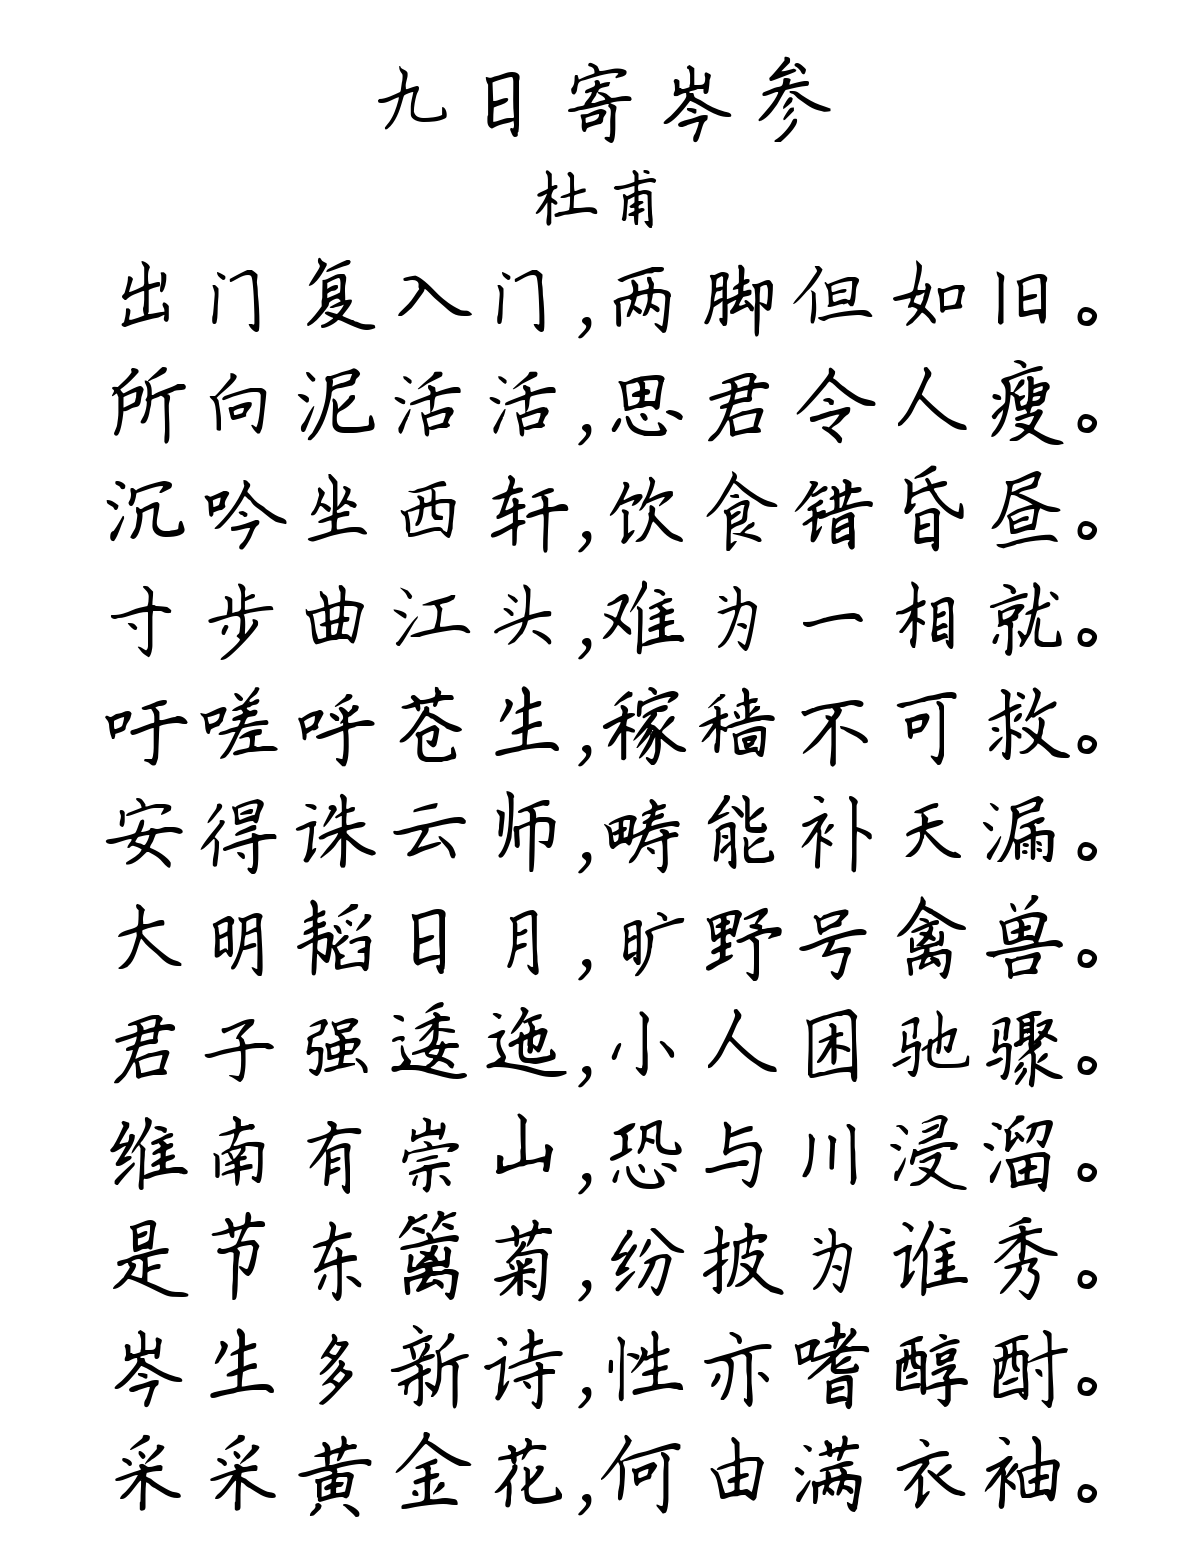 九日寄岑参
杜甫
出门复入门,两脚但如旧。
所向泥活活,思君令人瘦。
沉吟坐西轩,饮食错昏昼。
寸步曲江头,难为一相就。
吁嗟呼苍生,稼穑不可救。
安得诛云师,畴能补天漏。
大明韬日月,旷野号禽兽。
君子强逶迤,小人困驰骤。
维南有崇山,恐与川浸溜。
是节东篱菊,纷披为谁秀。
岑生多新诗,性亦嗜醇酎。
采采黄金花,何由满衣袖。